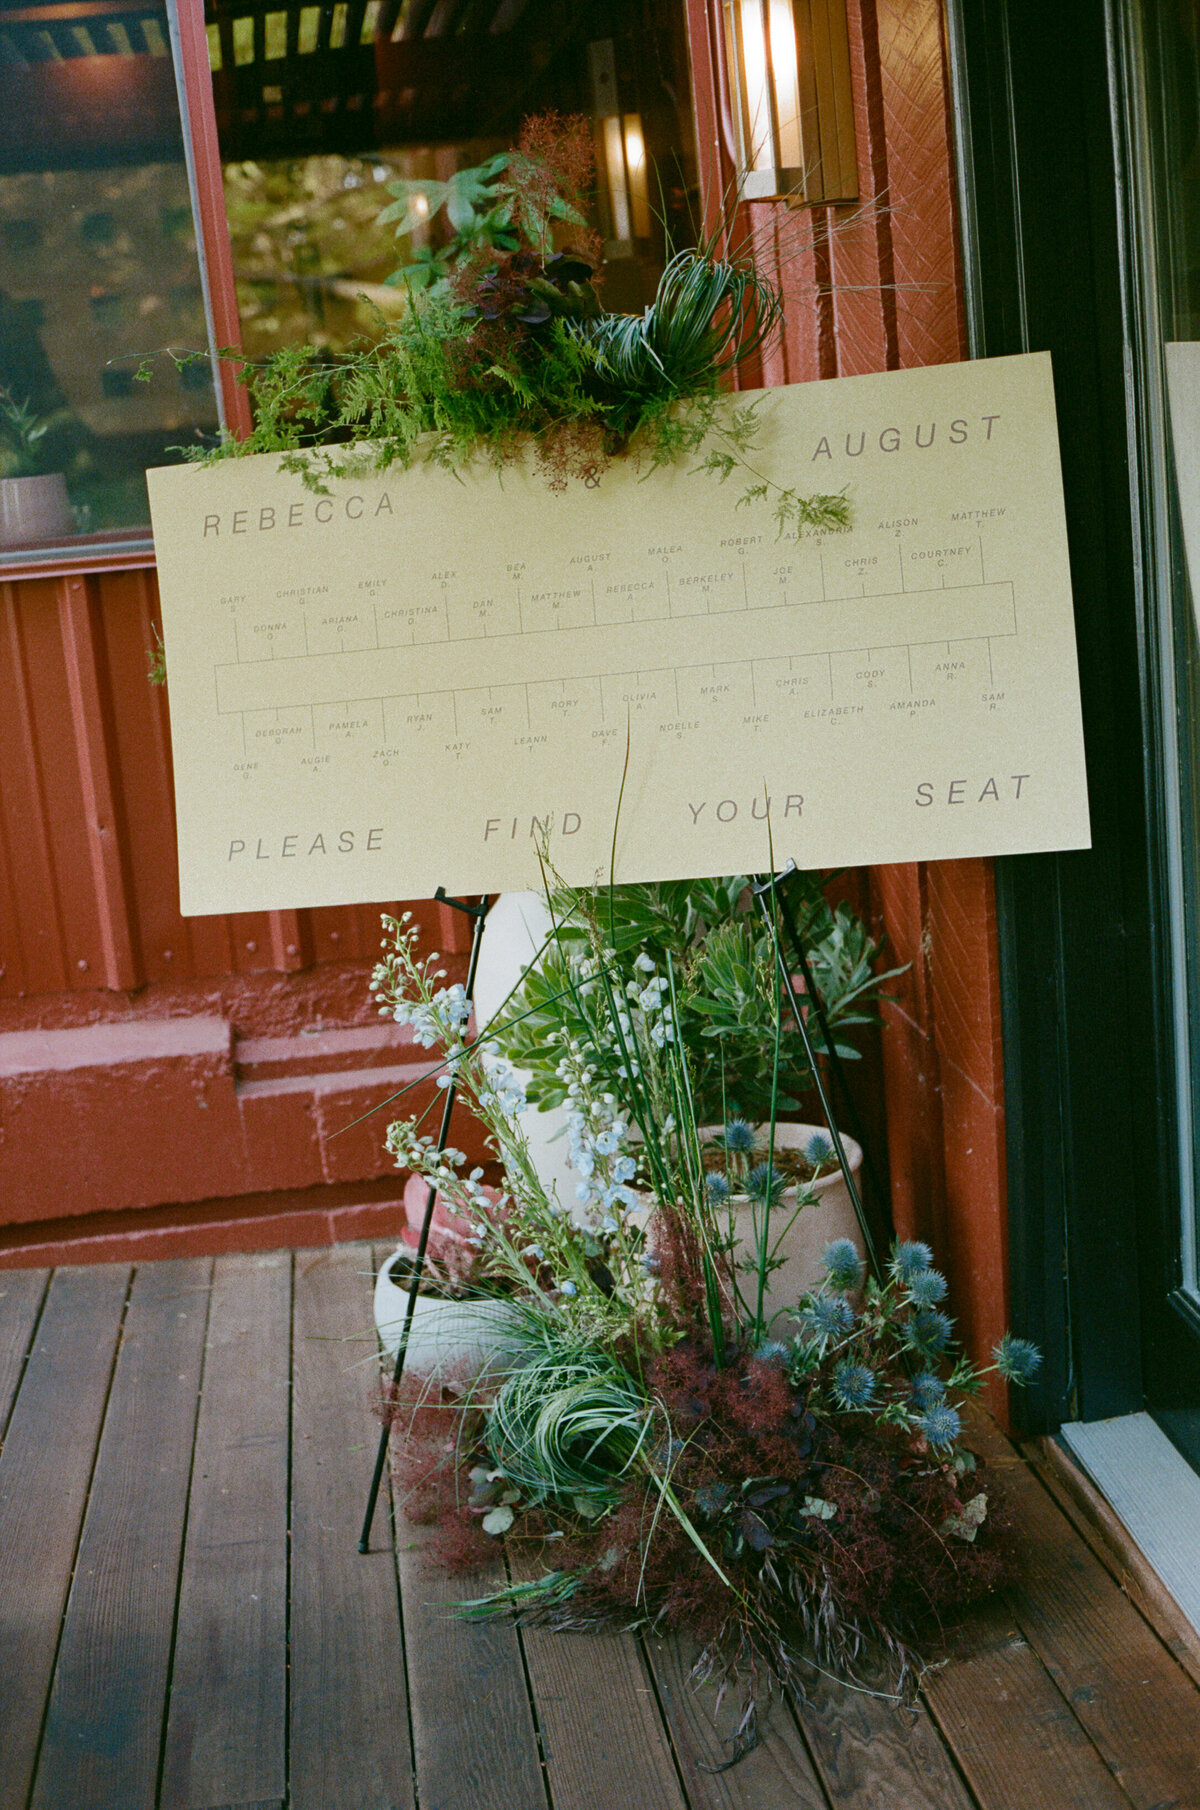 REBECCA & AUGUST
GARY S. DONNA G. CHRISTIAN G. ARIANA C. EMILY G. CHRISTINA D. ALEX D. DAN M. BEA M. MATTHEW M. AUGUST A. REBECCA A. MALEA O. BERKELEY M. ROBERT G. JOE M. ALEXANDRIA S. CHRIS Z. ALISON Z. COURTNEY C. MATTHEW T.
GENE G. DEBORAH AUGIE A. PAMELA A. ZACH RYAN J. KATY T. SAM T. LEANN T. RORY T. DAVE F. OLIVIA A. NOELLE S. MARK S. MIKE T. CHRIS A. ELIZABETH C. CODY S. AMANDA P. ANNA R. SAM R.
PLEASE FIND YOUR SEAT